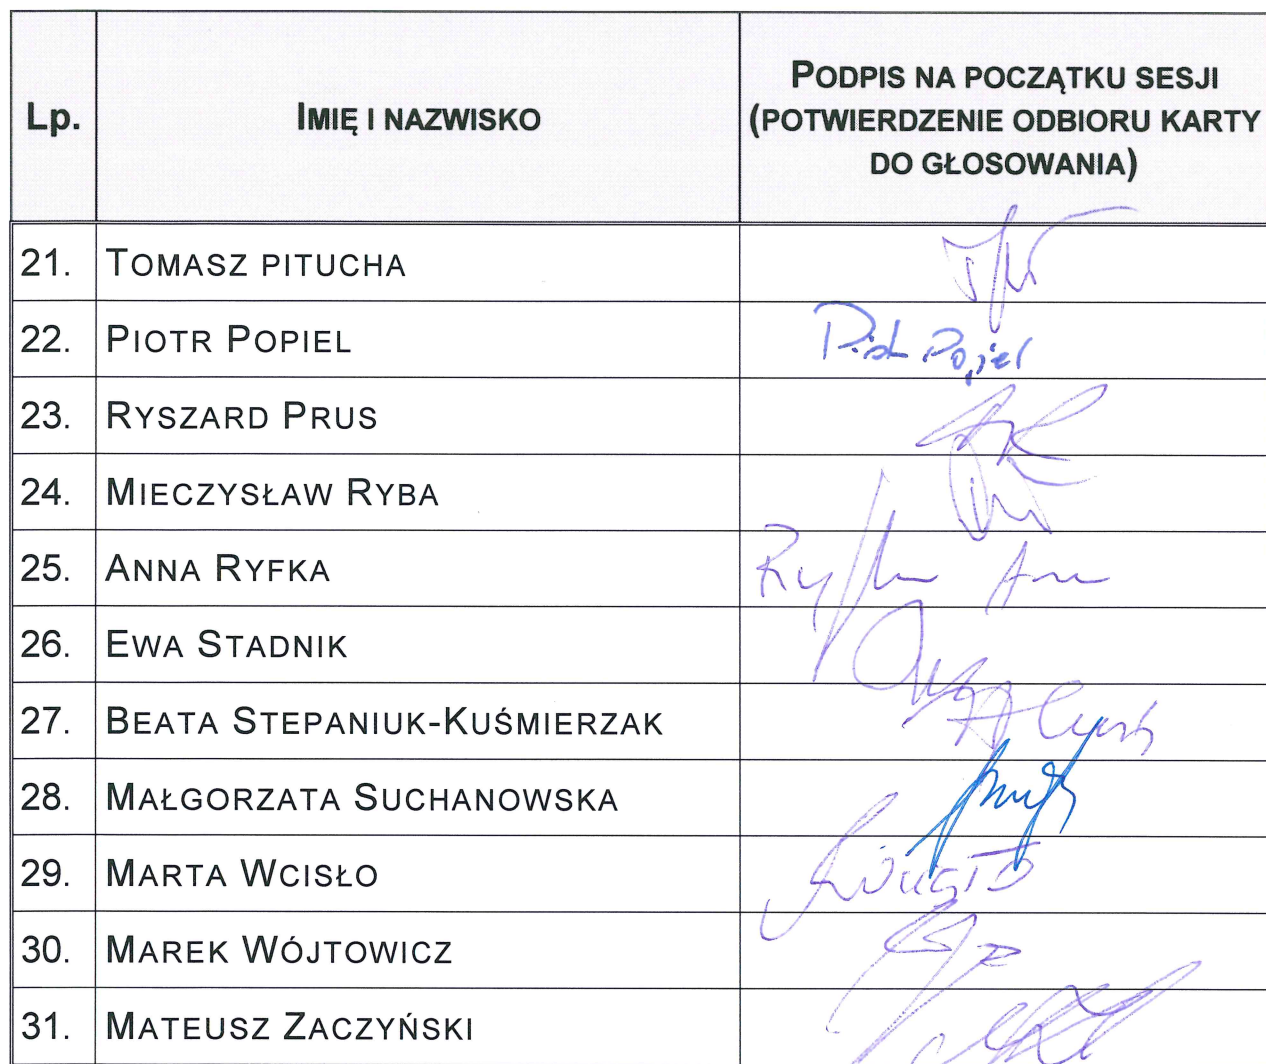 Lp.
IMIĘ I NAZWISKO
PODPIS NA POCZĄTKU SESJI
(POTWIERDZENIE ODBIORU KARTY
DO GŁOSOWANIA)
21. TOMASZ PITUCHA
22. PIOTR POPIEL Piotr Popiel
23. RYSZARD PRUS
24. MIECZYSŁAW RYBA
25. ANNA RYFKA Ryfka Anna
26. EWA STADNIK
27. BEATA STEPANIUK-KUŚMIERZAK
28. MAŁGORZATA SUCHANOWSKA
29. MARTA WCISŁO
30. MAREK WÓJTOWICZ
31. MATEUSZ ZACZYŃSKI